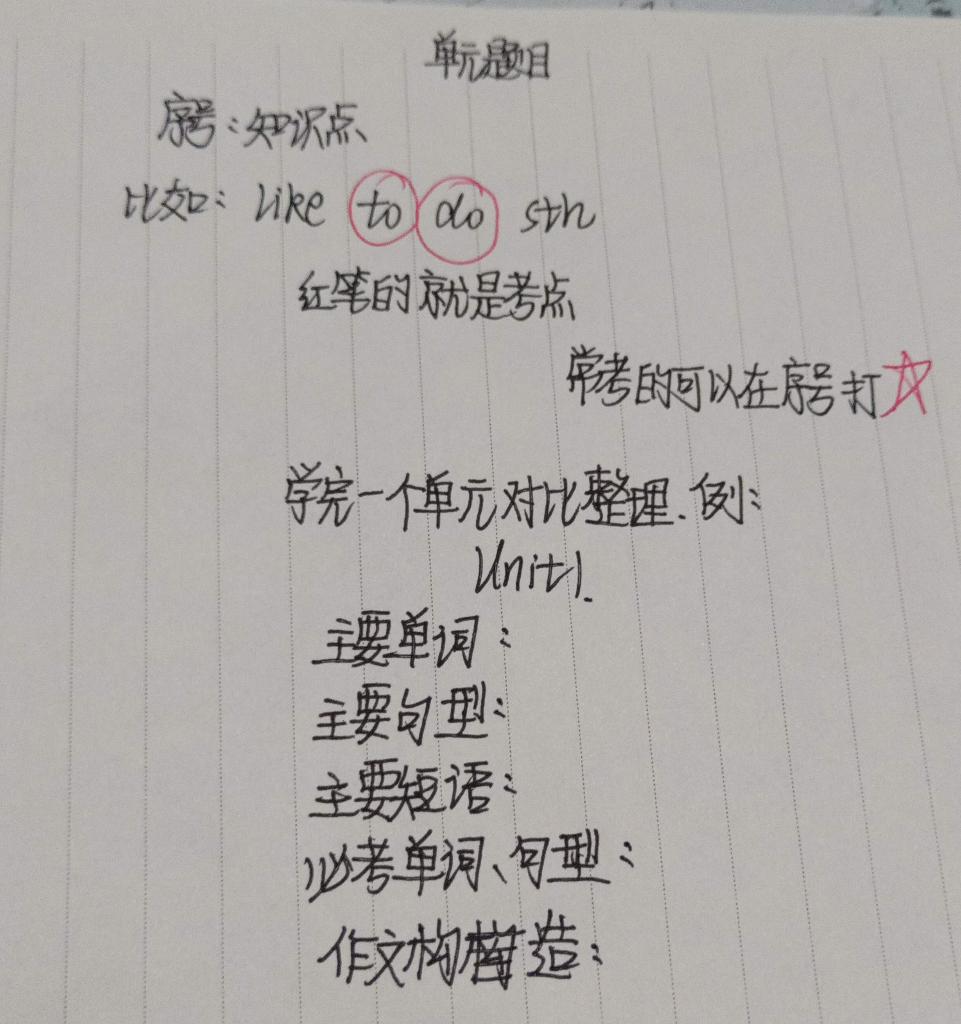 单元题目
序号:知识点
比如: like to do sth
红笔的就是考点
常考的可以在序号打☆
学完一个单元对比整理.例:
Unit1.
主要单词:
主要句型:
主要短语:
必考单词、句型:
作文构造: